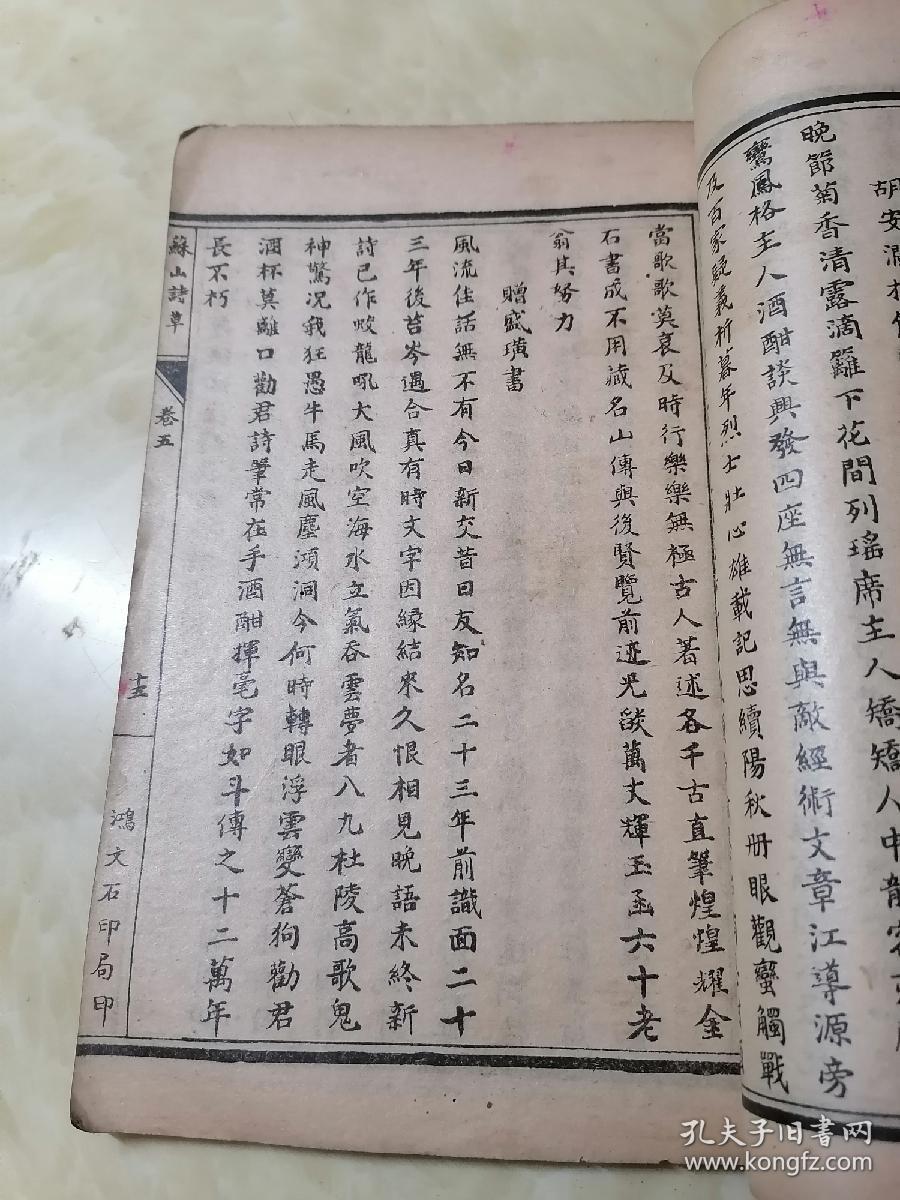 晚節菊香清露滴籬下花間列瑤席主人矯矯人中龍
鸞鳳格主人酒酣談興發四座無言無與敵經術文章江導源旁
及百家疑義析暮年烈士壯心雄載記思續陽秋冊眼觀蠻觸戰
當歌歌莫哀及時行樂樂無極古人著述各千古直筆煌煌耀金
石書成不用藏名山傳與後賢覽前迹光燄萬丈輝玉函六十老
翁其努力
贈盛璜書
風流佳話無不有今日新交昔日友知名二十三年前識面二十
三年後苔岑遇合真有時文字因緣結來久恨相見晚語未終新
詩已作蛟龍吼大風吹空海水立氣吞雲夢者八九杜陵高歌鬼
神驚况我狂愚牛馬走風塵澒洞今何時轉眼浮雲變蒼狗勸君
酒杯莫離口勸君詩筆常在手酒酣揮毫字如斗傳之十二萬年
長不朽
蘇山詩草
卷五
十五
鴻文石印局印
孔夫子旧书网
www.kongfz.com